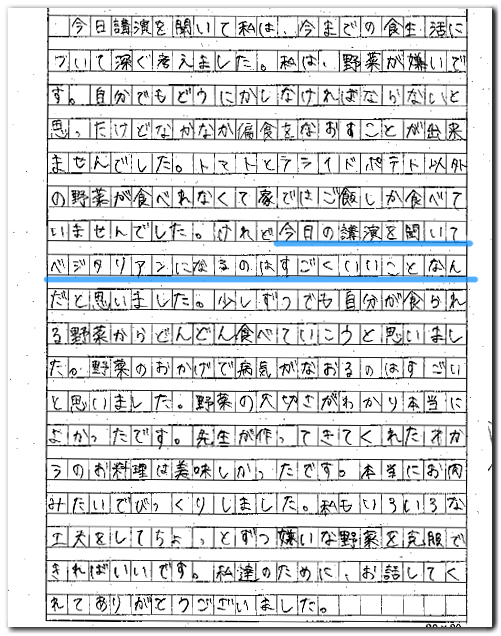 今日講演を聞いて私は、今までの食生活に
ついて深く考えました。私は、野菜が嫌いで
す。自分でもどうにかしなければならないと
思ったけどなかなか偏食をなおすことが出来
ませんでした。トマトとフライドポテト以外
の野菜が食べれなくて家ではご飯しか食べて
いませんでした。けれど今日の講演を聞いて
ベジタリアンになるのはすごくいいことなん
だと思いました。少しずつでも自分が食られ
る野菜からどんどん食べていこうと思いまし
た。野菜のおかげで病気がなおるのはすごい
と思いました。野菜の大切さがわかり本当に
よかったです。先生が作ってきてくれたオカ
ラのお料理は美味しかったです。本当にお肉
みたいでびっくりしました。私もいろいろな
工夫をしてちょっとずつ嫌いな野菜を克服で
きればいいです。私達のために、お話してく
れてありがとうございました。